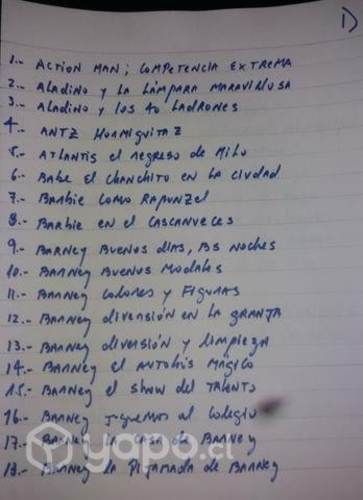 1)
1.- ACTION MAN; COMPETENCIA EXTREMA
2.- ALADINO Y LA LÁMPARA MARAVILLOSA
3.- ALADINO Y LOS 40 LADRONES
4.- ANTZ HORMIGUITAZ
5.- ATLANTIS el REGRESO de MILO
6.- BABE EL CHANCHITO EN LA CIUDAD
7.- BARBIE COMO RAPUNZEL
8.- BARBIE EN EL CASCANUECES
9.- BARNEY BUENOS DIAS, BS NOCHES
10.- BARNEY BUENOS MODALES
11.- BARNEY COLORES Y FIGURAS
12.- BARNEY DIVERSIÓN EN LA GRANJA
13.- BARNEY DIVERSIÓN Y LIMPIEZA
14.- BARNEY el AUTOBÚS MÁGICO
15.- BARNEY el SHOW del TALENTO
16.- BARNEY JUGUEMOS AL COLEGIO
17.- BARNEY LA CASA de BARNEY
18.- BARNEY LA PIJAMADA de BARNEY
yapo.cl